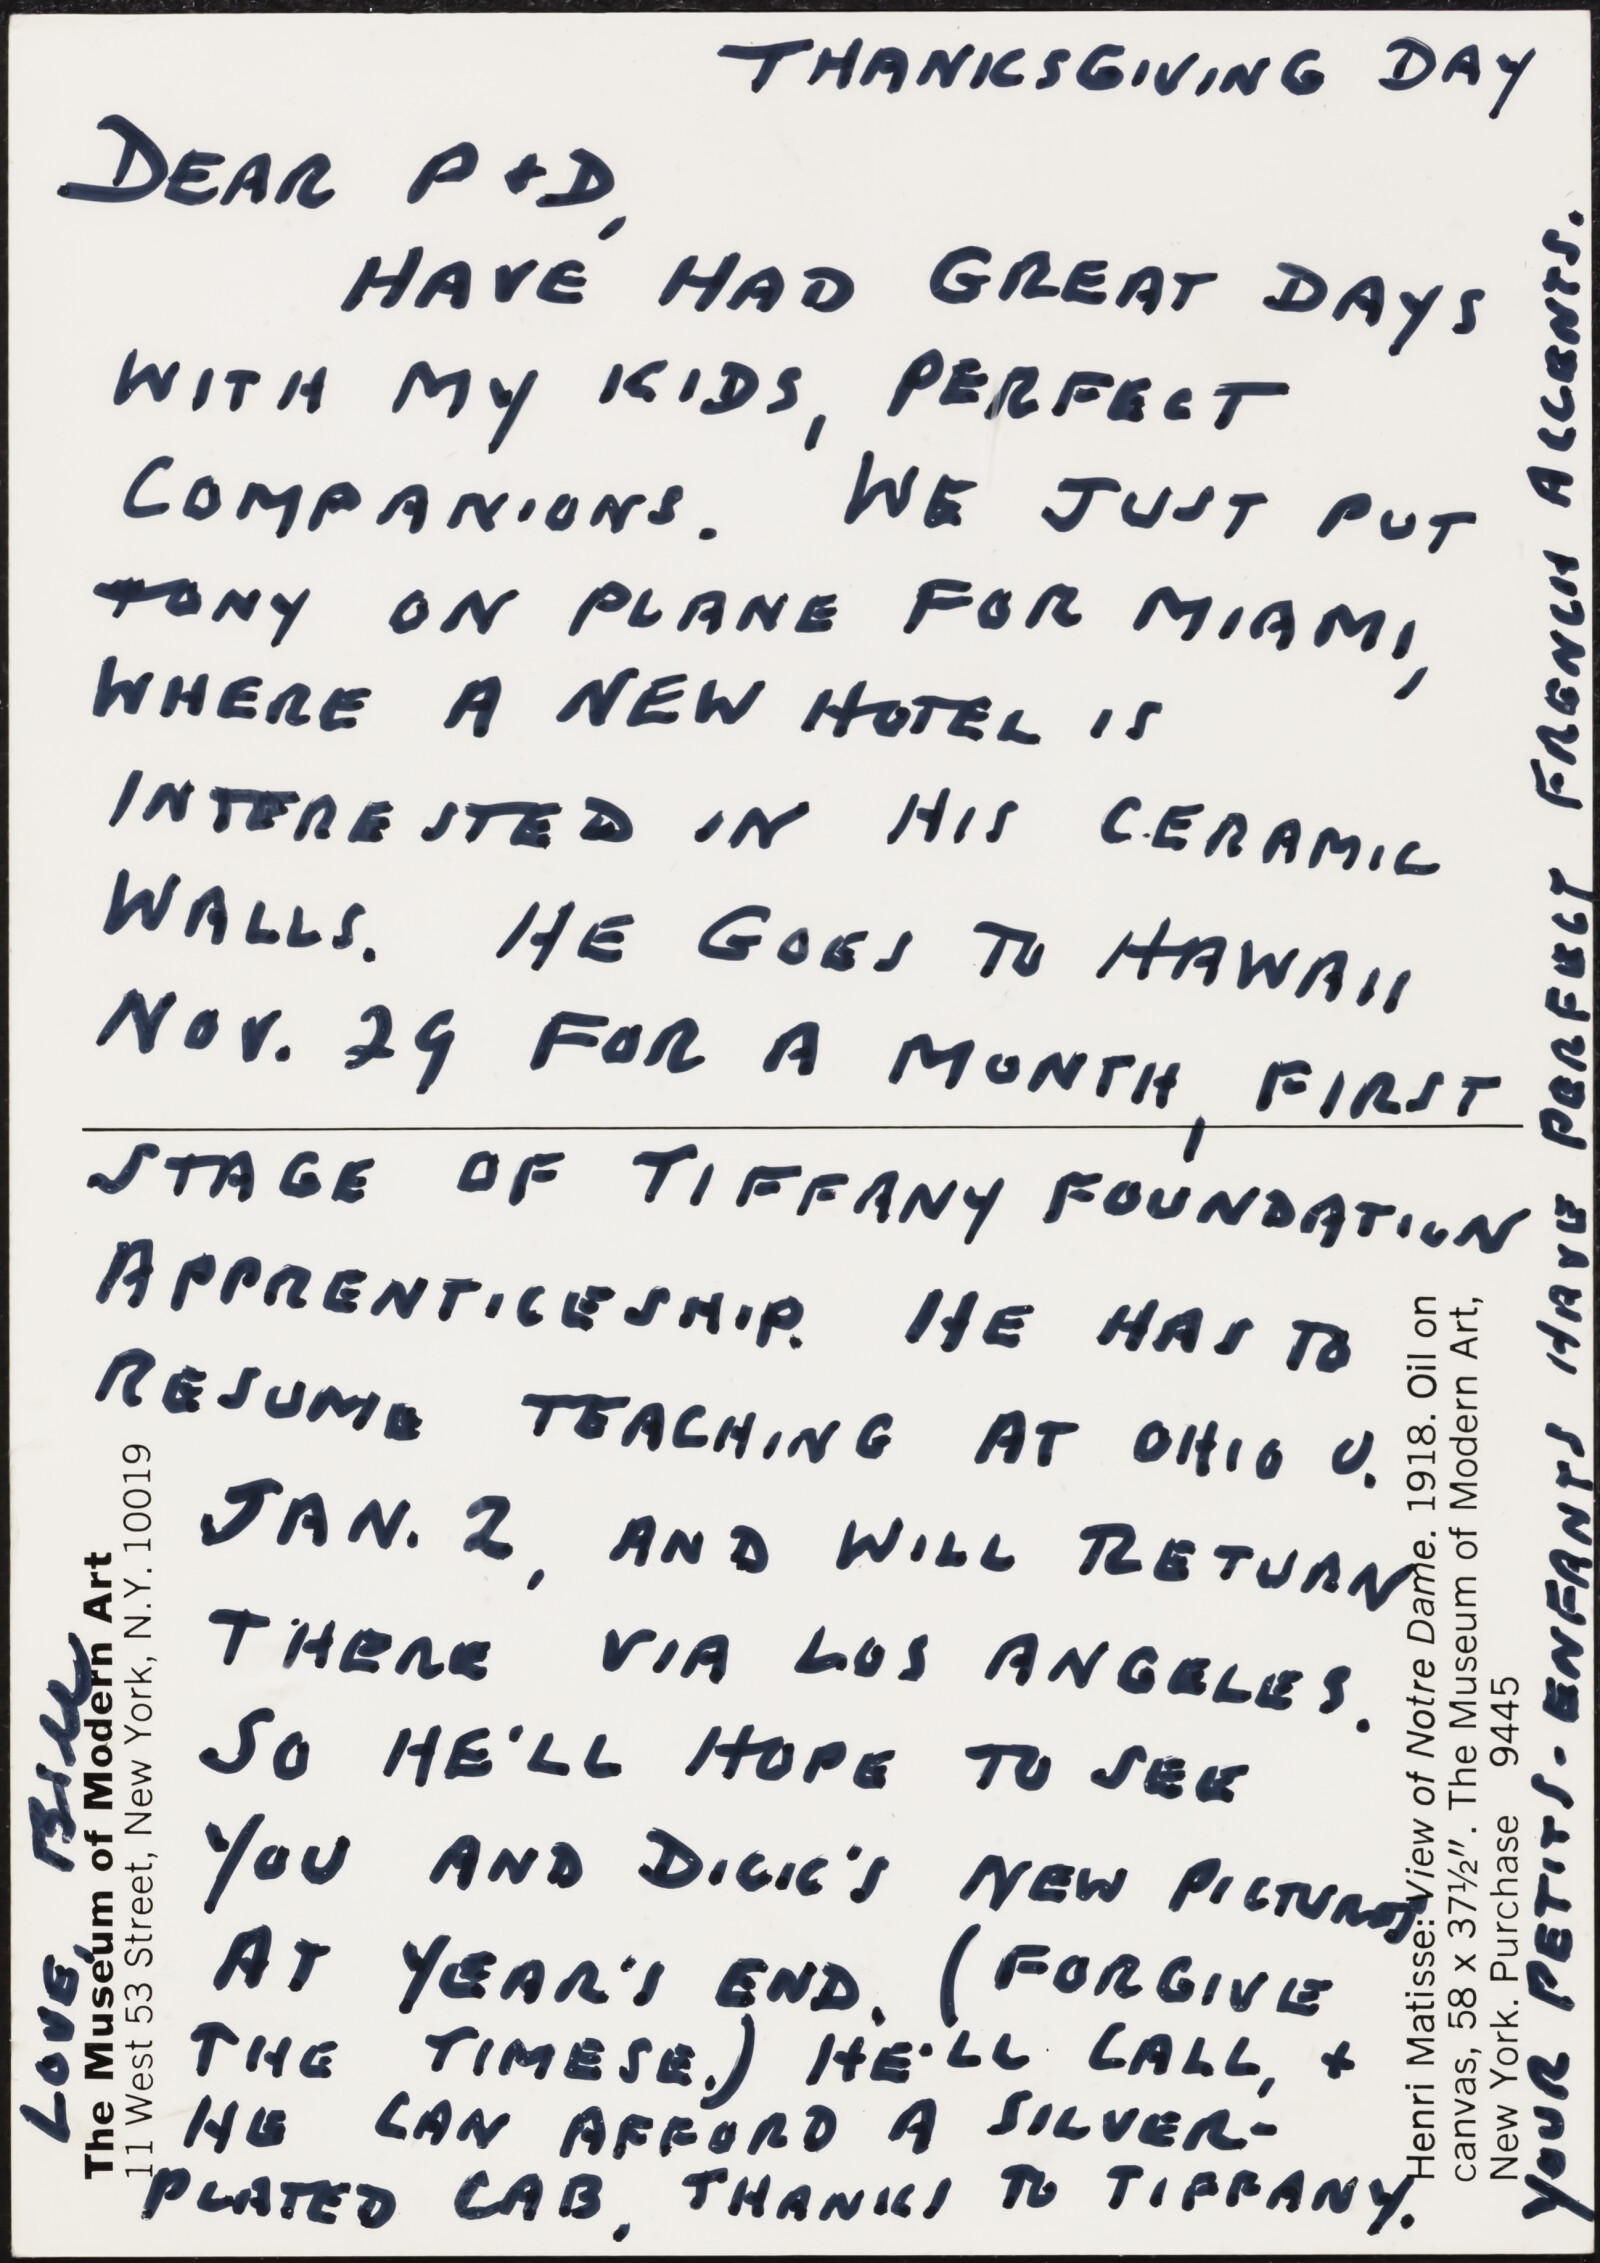 THANKSGIVING DAY
DEAR P+D,
HAVE HAD GREAT DAYS
WITH MY KIDS, PERFECT
COMPANIONS. WE JUST PUT
TONY ON PLANE FOR MIAMI,
WHERE A NEW HOTEL IS
INTERESTED IN HIS CERAMIC
WALLS. HE GOES TO HAWAII
NOV. 29 FOR A MONTH, FIRST
STAGE OF TIFFANY FOUNDATION
APPRENTICESHIP. HE HAS TO
RESUME TEACHING AT OHIO U.
JAN. 2, AND WILL RETURN
THERE VIA LOS ANGELES.
SO HE'LL HOPE TO SEE
YOU AND DICK'S NEW PICTURES
AT YEAR'S END. (FORGIVE
THE TIMESE.) HE'LL CALL, +
HE CAN AFFORD A SILVER-
PLATED CAB, THANKS TO TIFFANY.
YOUR PETITS-ENFANTS HAVE PERFECT FRENCH ACCENTS.
LOVE, BILL
The Museum of Modern Art
11 West 53 Street, New York, N.Y. 10019
Henri Matisse: View of Notre Dame. 1918. Oil on
canvas, 58 x 37½". The Museum of Modern Art,
New York. Purchase 9445